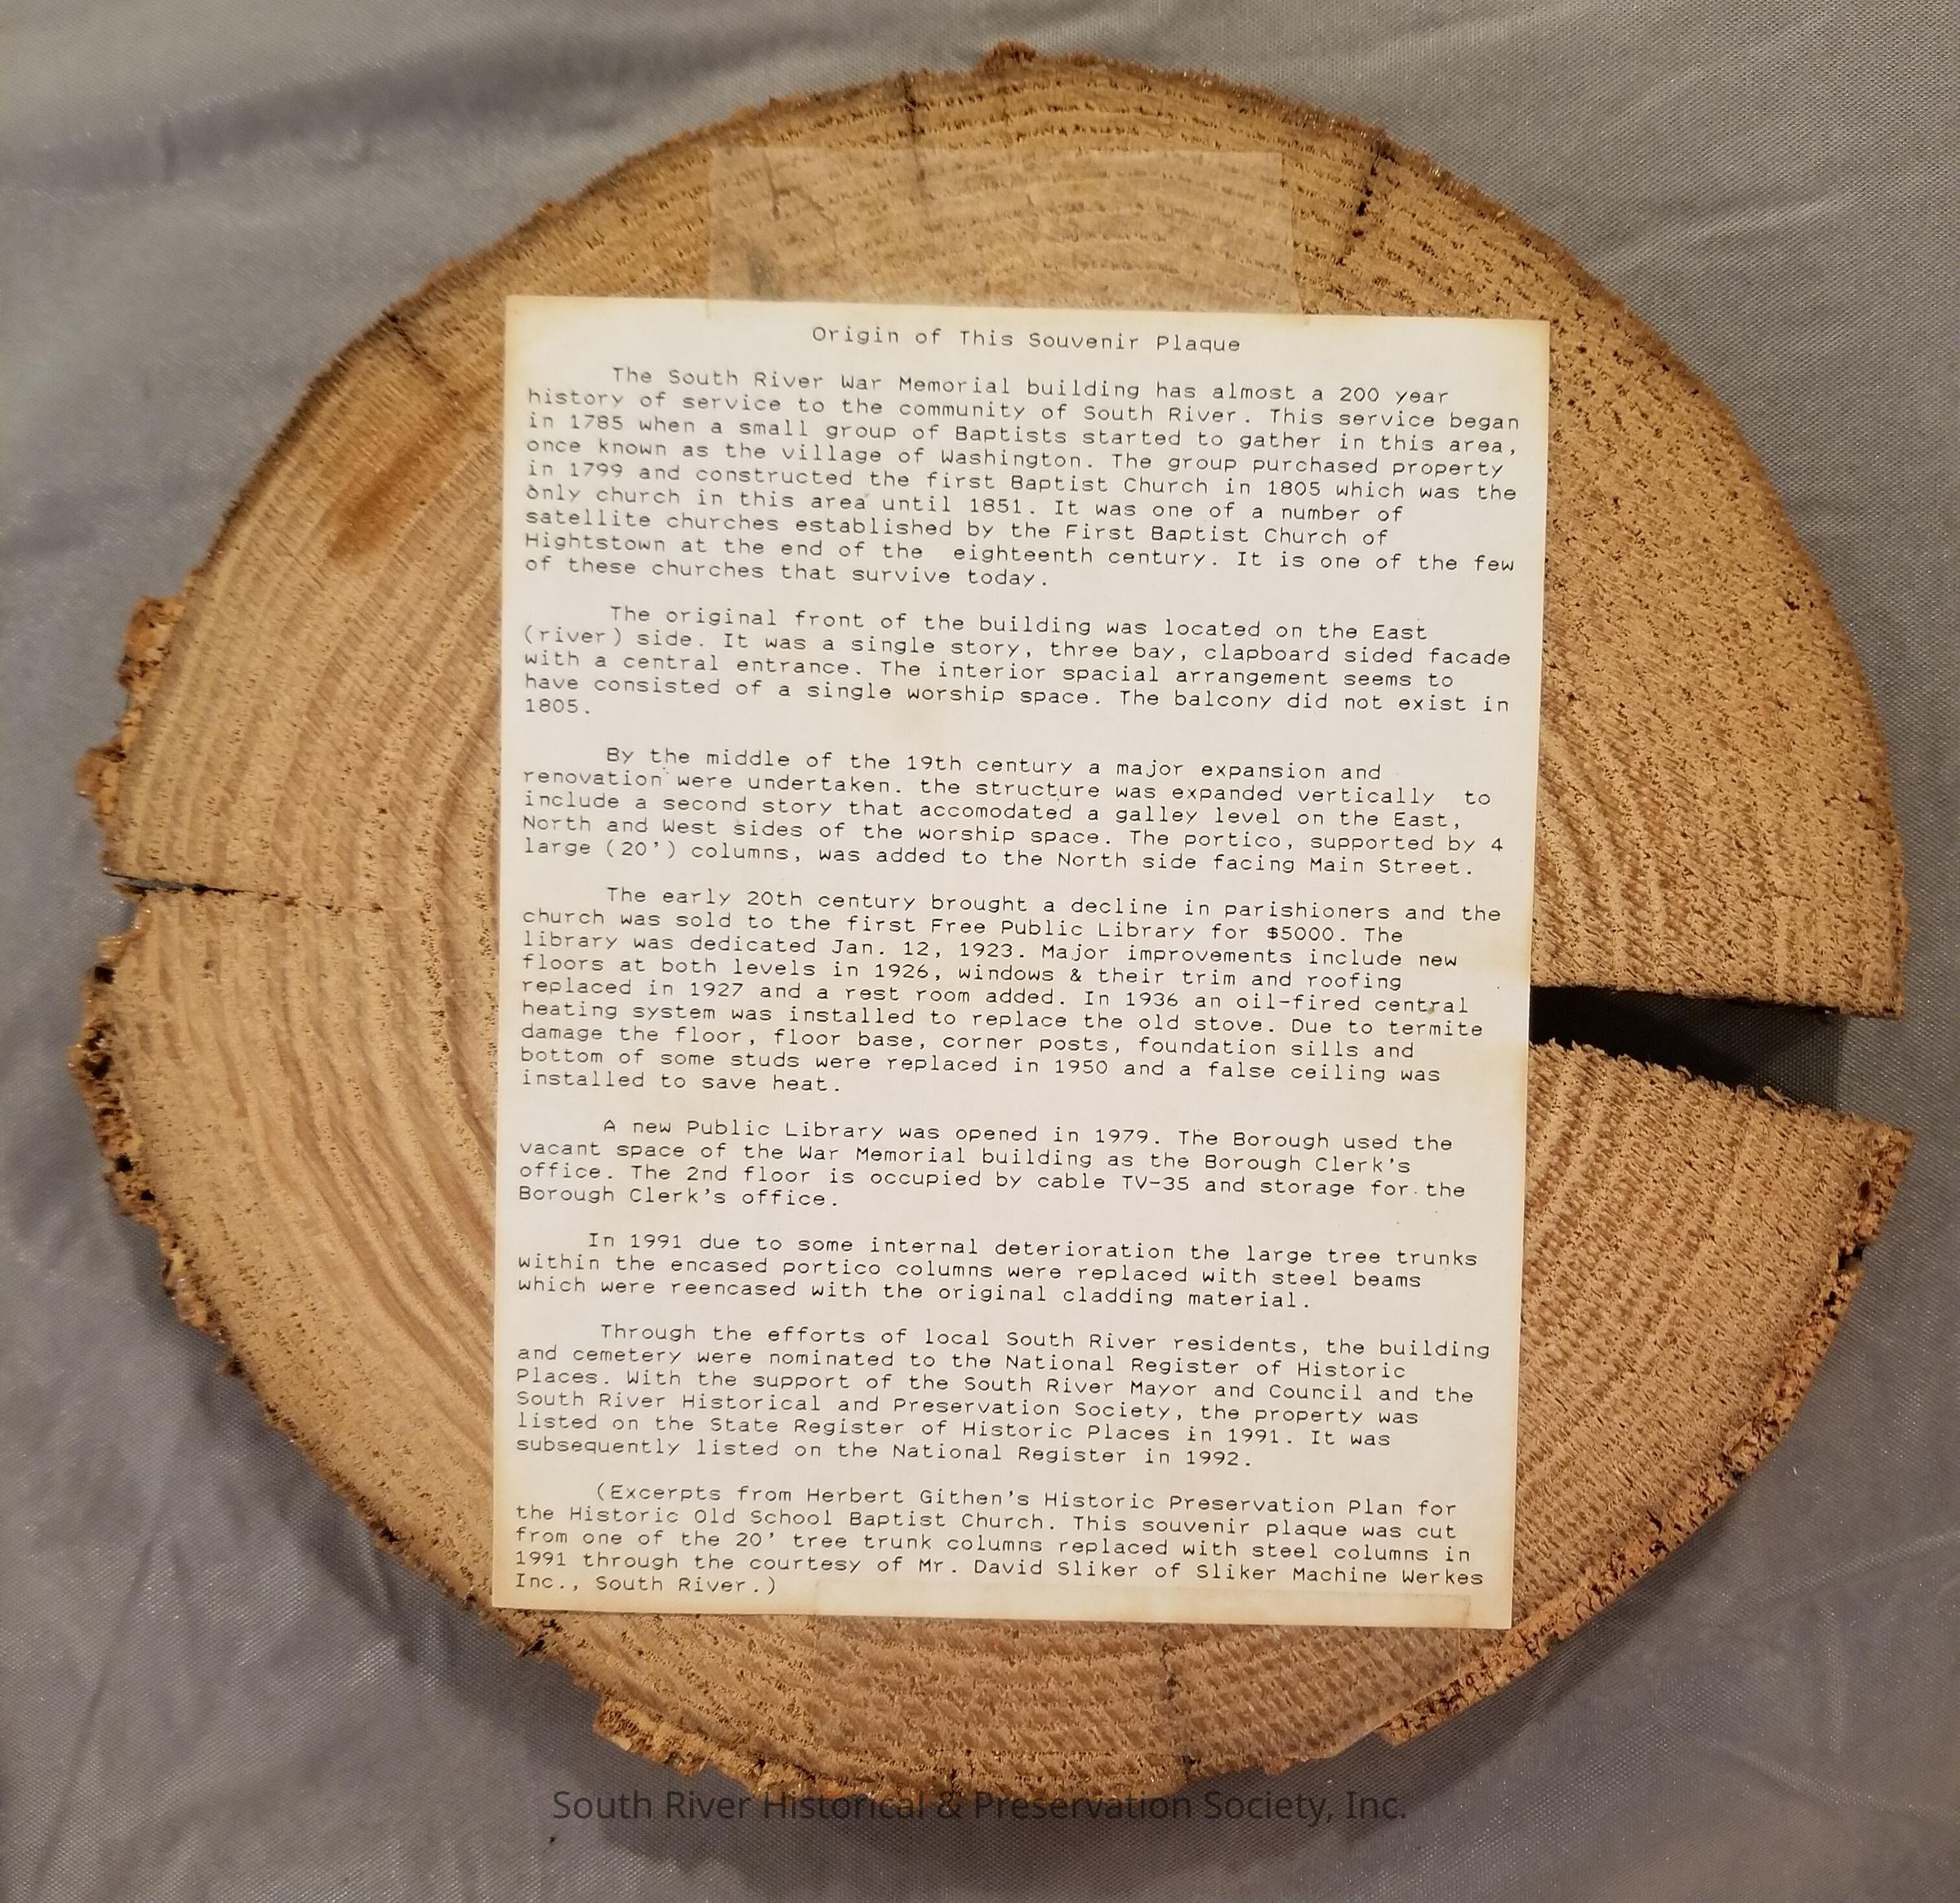 Origin of This Souvenir Plaque
The South River War Memorial building has almost a 200 year
history of service to the community of South River. This service began
in 1785 when a small group of Baptists started to gather in this area,
once known as the village of Washington. The group purchased property
in 1799 and constructed the first Baptist Church in 1805 which was the
only church in this area until 1851. It was one of a number of
satellite churches established by the First Baptist Church of
Hightstown at the end of the  eighteenth century. It is one of the few
of these churches that survive today.
The original front of the building was located on the East
(river) side. It was a single story, three bay, clapboard sided facade
with a central entrance. The interior spacial arrangement seems to
have consisted of a single worship space. The balcony did not exist in
1805.
By the middle of the 19th century a major expansion and
renovation were undertaken. the structure was expanded vertically  to
include a second story that accomodated a galley level on the East,
North and West sides of the worship space. The portico, supported by 4
large (20') columns, was added to the North side facing Main Street.
The early 20th century brought a decline in parishioners and the
church was sold to the first Free Public Library for $5000. The
library was dedicated Jan. 12, 1923. Major improvements include new
floors at both levels in 1926, windows & their trim and roofing
replaced in 1927 and a rest room added. In 1936 an oil-fired central
heating system was installed to replace the old stove. Due to termite
damage the floor, floor base, corner posts, foundation sills and
bottom of some studs were replaced in 1950 and a false ceiling was
installed to save heat.
A new Public Library was opened in 1979. The Borough used the
vacant space of the War Memorial building as the Borough Clerk's
office. The 2nd floor is occupied by cable TV-35 and storage for the
Borough Clerk's office.
In 1991 due to some internal deterioration the large tree trunks
within the encased portico columns were replaced with steel beams
which were reencased with the original cladding material.
Through the efforts of local South River residents, the building
and cemetery were nominated to the National Register of Historic
Places. With the support of the South River Mayor and Council and the
South River Historical and Preservation Society, the property was
listed on the State Register of Historic Places in 1991. It was
subsequently listed on the National Register in 1992.
(Excerpts from Herbert Githen's Historic Preservation Plan for
the Historic Old School Baptist Church. This souvenir plaque was cut
from one of the 20' tree trunk columns replaced with steel columns in
1991 through the courtesy of Mr. David Sliker of Sliker Machine Werkes
Inc., South River.)
South River Historical & Preservation Society, Inc.